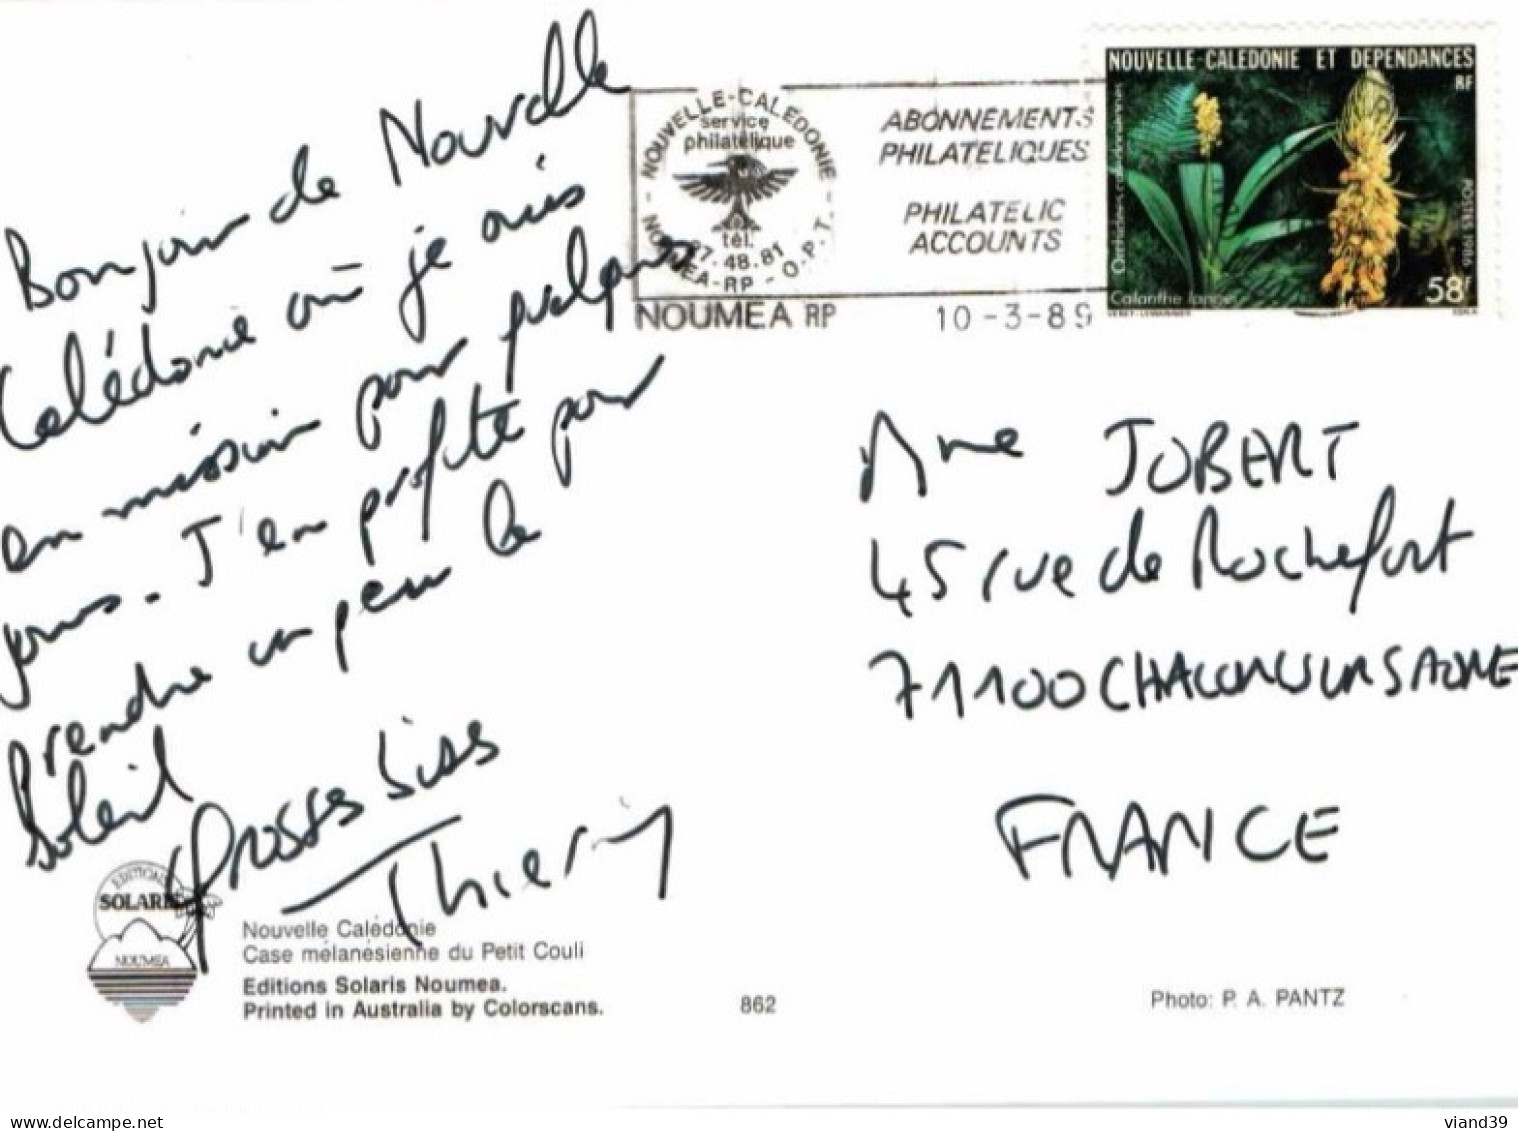 Bonjour de Nouvelle
Calédonie où je suis
en mission pour quelques
jours. J'en profite pour
prendre un peu le
Soleil
Grosses bises
Thierry
NOUVELLE-CALEDONIE
service
philatélique
tél.
27.48.81
NOUMEA-RP - O.P.T. -
NOUMEA RP
ABONNEMENTS
PHILATELIQUES
PHILATELIC
ACCOUNTS
10-3-89
NOUVELLE-CALEDONIE ET DEPENDANCES
RF
Orchidées calédoniennes
POSTES 1986
Calanthe
58F
Mme JOBERT
45 rue de Rochefort
71100 CHALON SUR SAONE
FRANCE
EDITIONS
SOLARIS
NOUMEA
Nouvelle Calédonie
Case mélanésienne du Petit Couli
Editions Solaris Noumea.
Printed in Australia by Colorscans.
862
Photo: P. A. PANTZ
delcampe.net
viand39